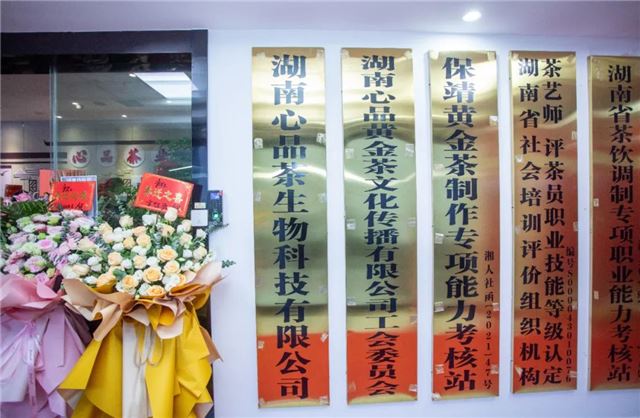 心品茶业
乔迁之喜
湖南心品茶生物科技有限公司
湖南心品黄金茶文化传播有限公司工会委员会
保靖黄金茶制作专项能力考核站
湘人社函(2021)47号
茶艺师 评茶员职业技能等级认定
湖南省社会培训评价组织机构
编号S000043010076
湖南省茶饮调制专项职业能力考核站